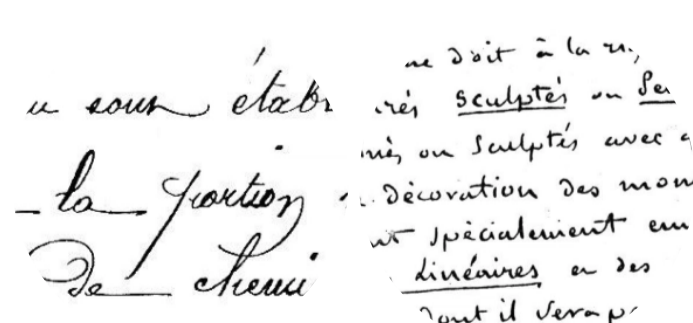 sous établ
la portion
De chemi
ne doit à la
sculptés ou
ou Sculptés avec
Décoration des mon
nt spécialement em
Linéaires en des
Dont il sera p